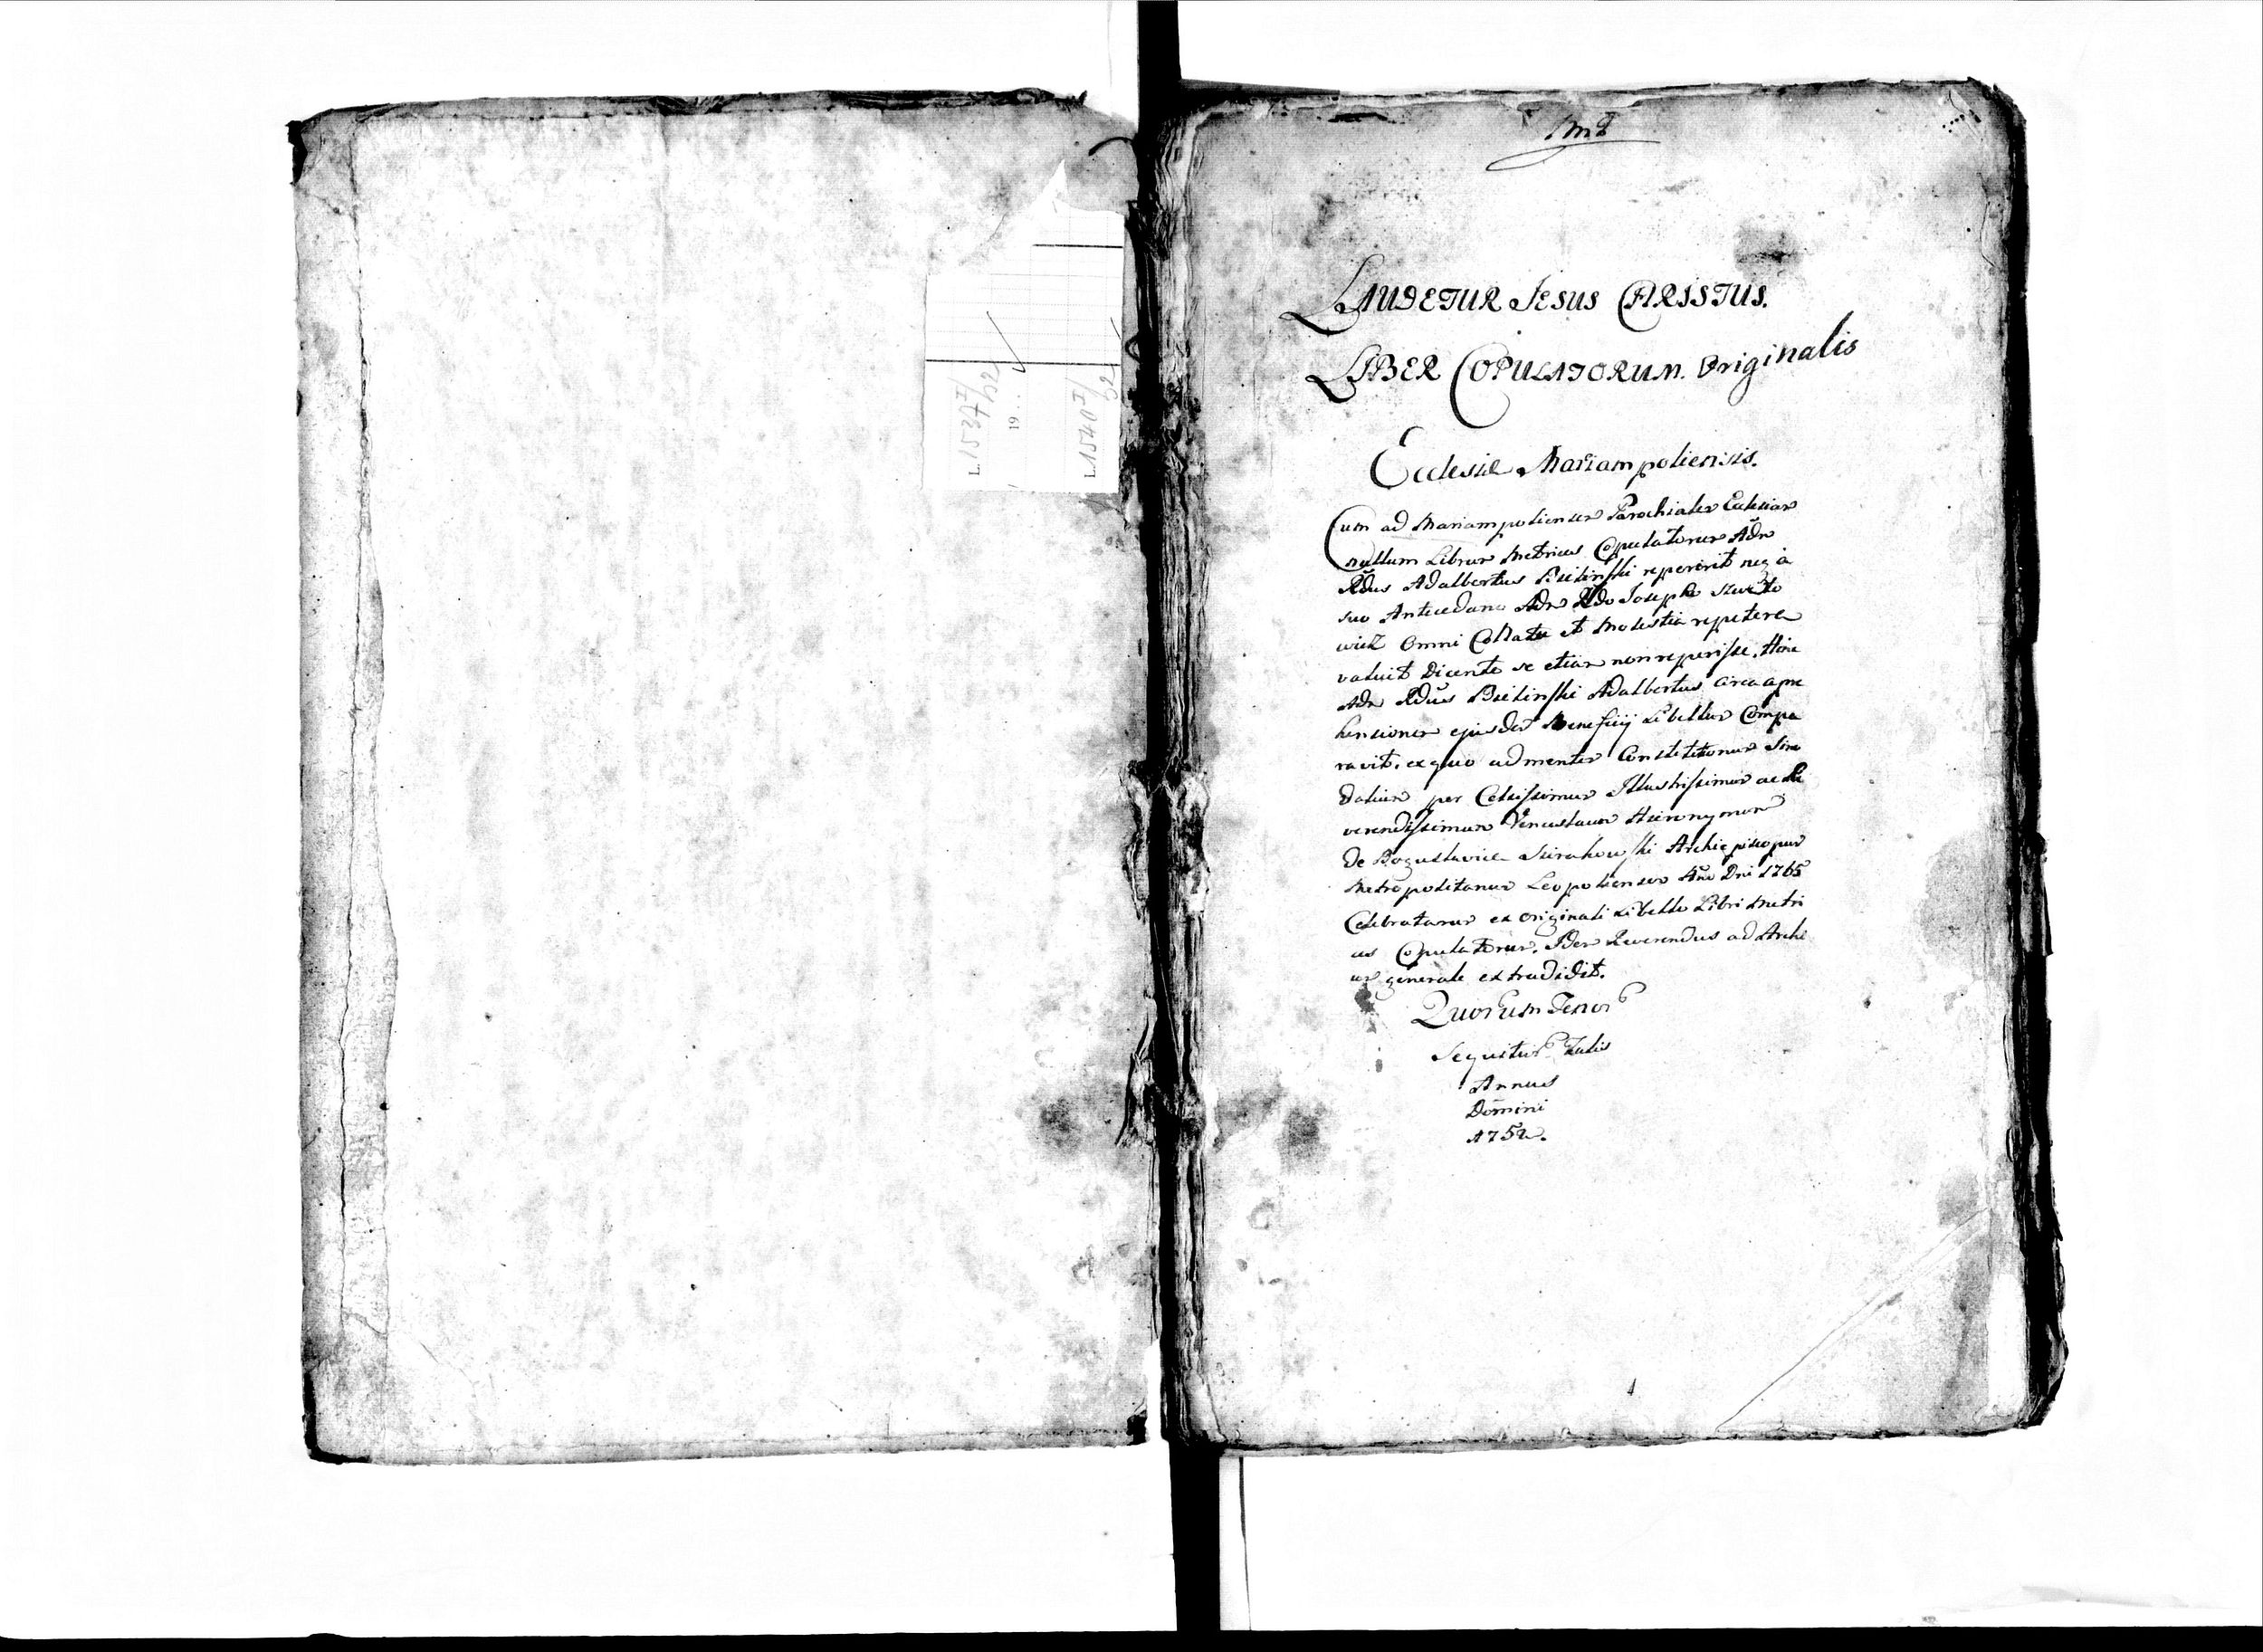 L. 1537/I/29
19 . .
L. 1540/I/29
1ma
LAUDETUR JESUS CHRISTUS.
LIBER COPULATORUM. Originalis
Ecclesiæ Mariampoliensis.
Cum ad Mariampoliensem Parochialem Ecclesiam
nullum Librum Metrices Copulatorum Adm
Rdus Adalbertus Bielinski repererit neq à
suo Antecedane Adm Rdo Josepho
wicz Omni Conatu et Molestia repetere
valuit Dicente se etiam non reperisse. Hinc
Adm Rdus Bielinski Adalbertus circa apre
hensionem ejusdem Beneficij Libellum Compa
ravit. ex quo ad mentem Constitutionum Sino
dalium per Celsissimum Illustrissimum ac Re
verendissimum Venceslaum Hieronymum
de Boguslavice Sierakowski Archiepiscopum
Metropolitanum Leopoliensem Ano Dni 1765
Celebratarum ex originali Libello Libri Metri
ces Copulatorum. Idem Reverendus ad Archi
um generale extradidit.
Quorum Tenor
Sequitur Talis
Annus
Domini
1752.
1